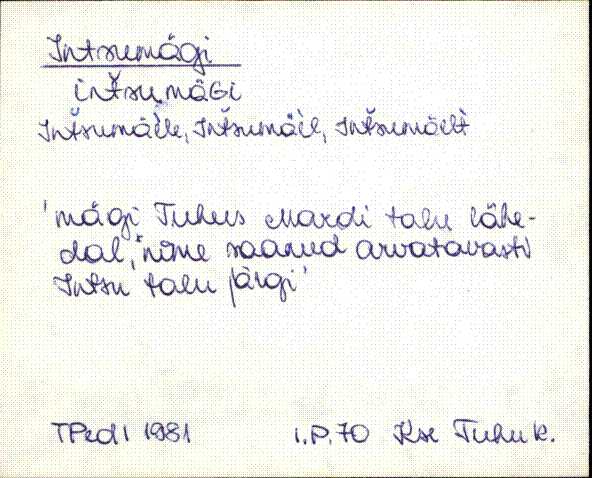 Intsumägi
intšumäGi
Intšumäele, Intšumäel, Intšumäelt
'mägi Tuhus Mardi talu lähe-
dal, nime saanud arvatavasti
Intsu talu järgi'
TPedI 1981 i.P.70 Kse Tuhu k.